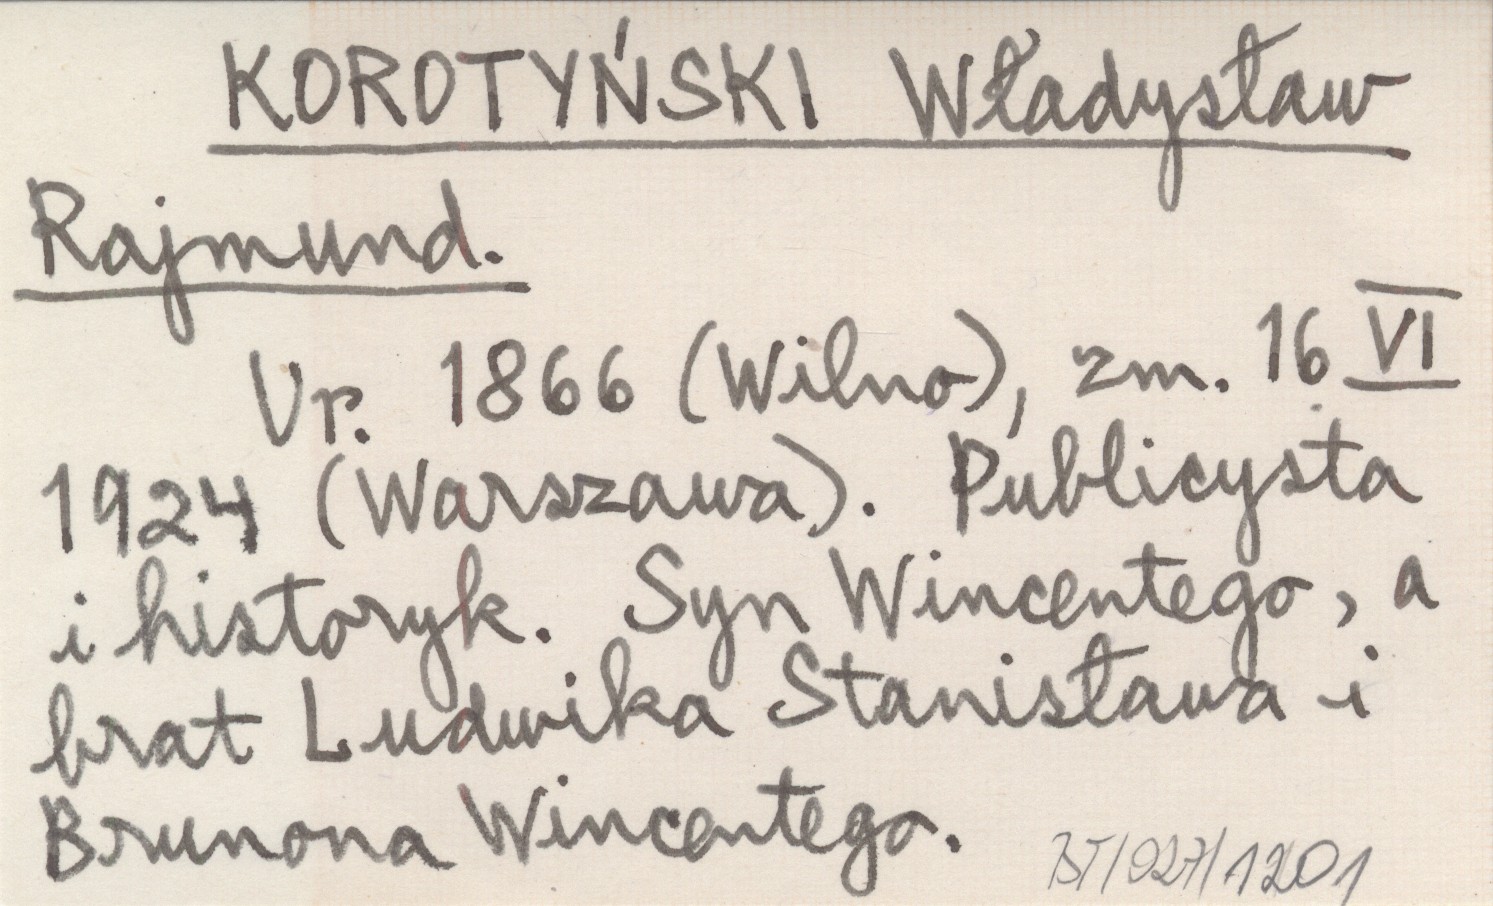 KOROTYŃSKI Władysław
Rajmund.
Ur. 1866 (Wilno), zm. 16 VI
1924 (Warszawa). Publicysta
i historyk. Syn Wincentego, a
brat Ludwika Stanisława i
Brunona Wincentego.
BT/027/1201